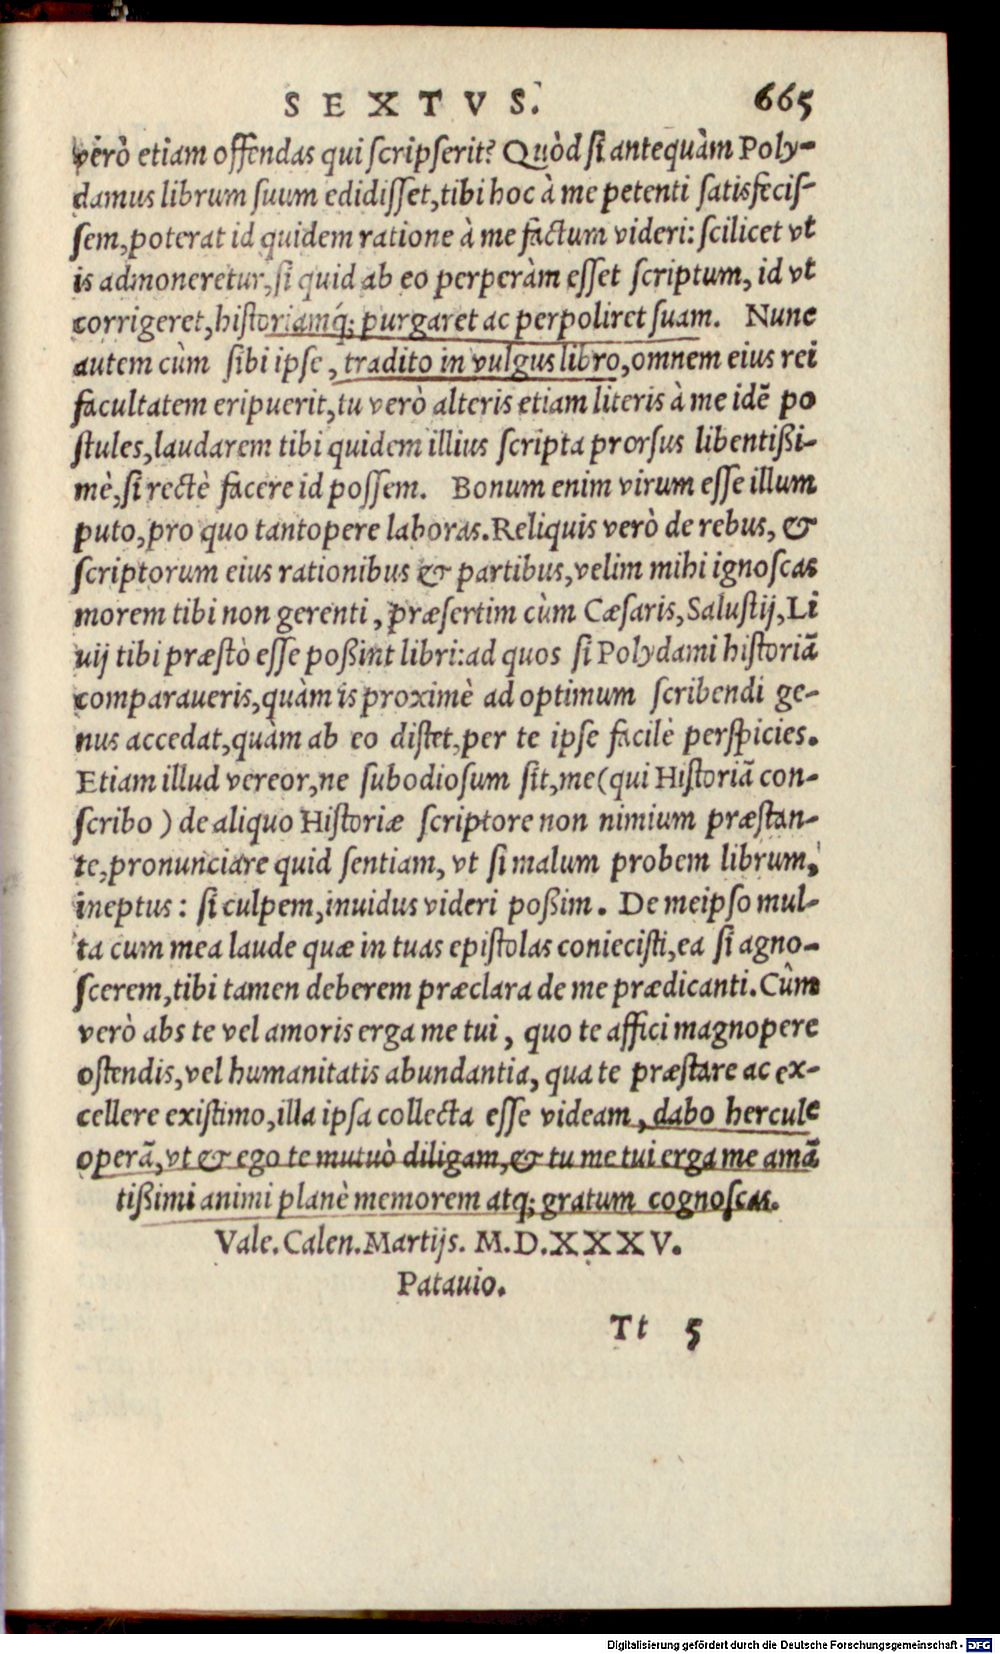 SEXTVS. 665
verò etiam offendas qui scripserit? Quòd si antequàm Poly-
damus librum suum edidisset, tibi hoc à me petenti satisfecis-
sem, poterat id quidem ratione à me factum videri: scilicet vt
is admoneretur, si quid ab eo perperàm esset scriptum, id vt
corrigeret, historiamq́; purgaret ac perpoliret suam. Nunc
autem cùm sibi ipse, tradito in vulgus libro, omnem eius rei
facultatem eripuerit, tu verò alteris etiam literis à me idẽ po
stules, laudarem tibi quidem illius scripta prorsus libentißi-
mè, si rectè facere id possem. Bonum enim virum esse illum
puto, pro quo tantopere laboras. Reliquis verò de rebus, &
scriptorum eius rationibus & partibus, velim mihi ignoscas
morem tibi non gerenti, præsertim cùm Cæsaris, Salustij, Li
uij tibi præstò esse poßint libri: ad quos si Polydami historiã
comparaueris, quàm is proximè ad optimum scribendi ge-
nus accedat, quàm ab eo distet, per te ipse facilè perspicies.
Etiam illud vereor, ne subodiosum sit, me (qui Historiã con-
scribo) de aliquo Historiæ scriptore non nimium præstan-
te, pronunciare quid sentiam, vt si malum probem librum,
ineptus: si culpem, inuidus videri poßim. De meipso mul-
ta cum mea laude quæ in tuas epistolas coniecisti, ea si agno-
scerem, tibi tamen deberem præclara de me prædicanti. Cùm
verò abs te vel amoris erga me tui, quo te affici magnopere
ostendis, vel humanitatis abundantia, qua te præstare ac ex-
cellere existimo, illa ipsa collecta esse videam, dabo hercule
operã, vt & ego te mutuò diligam, & tu me tui erga me amã
tißimi animi planè memorem atq; gratum cognoscas.
Vale. Calen. Martijs. M.D.XXXV.
Patauio.
Tt 5
Digitalisierung gefördert durch die Deutsche Forschungsgemeinschaft - DFG